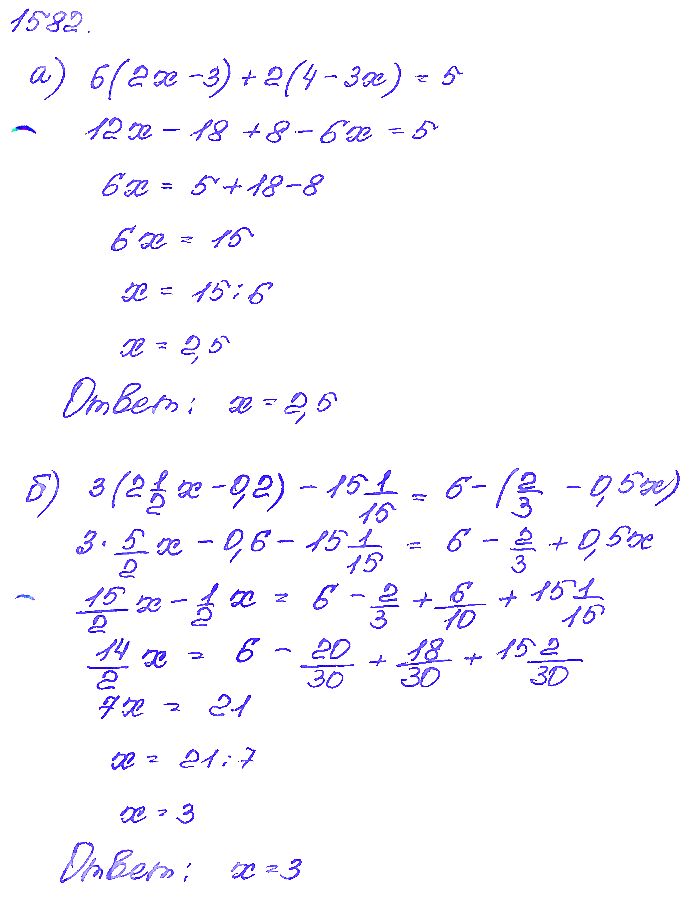 1582.
а) 6(2x-3)+2(4-3x)=5
12x-18+8-6x=5
6x=5+18-8
6x=15
x=15:6
x=2,5
Ответ: x=2,5
б) 3(2 1/2 x-0,2)-15 1/15=6-(2/3-0,5x)
3·5/2 x-0,6-15 1/15=6-2/3+0,5x
15/2 x-1/2 x=6-2/3+6/10+15 1/15
14/2 x=6-20/30+18/30+15 2/30
7x=21
x=21:7
x=3
Ответ: x=3